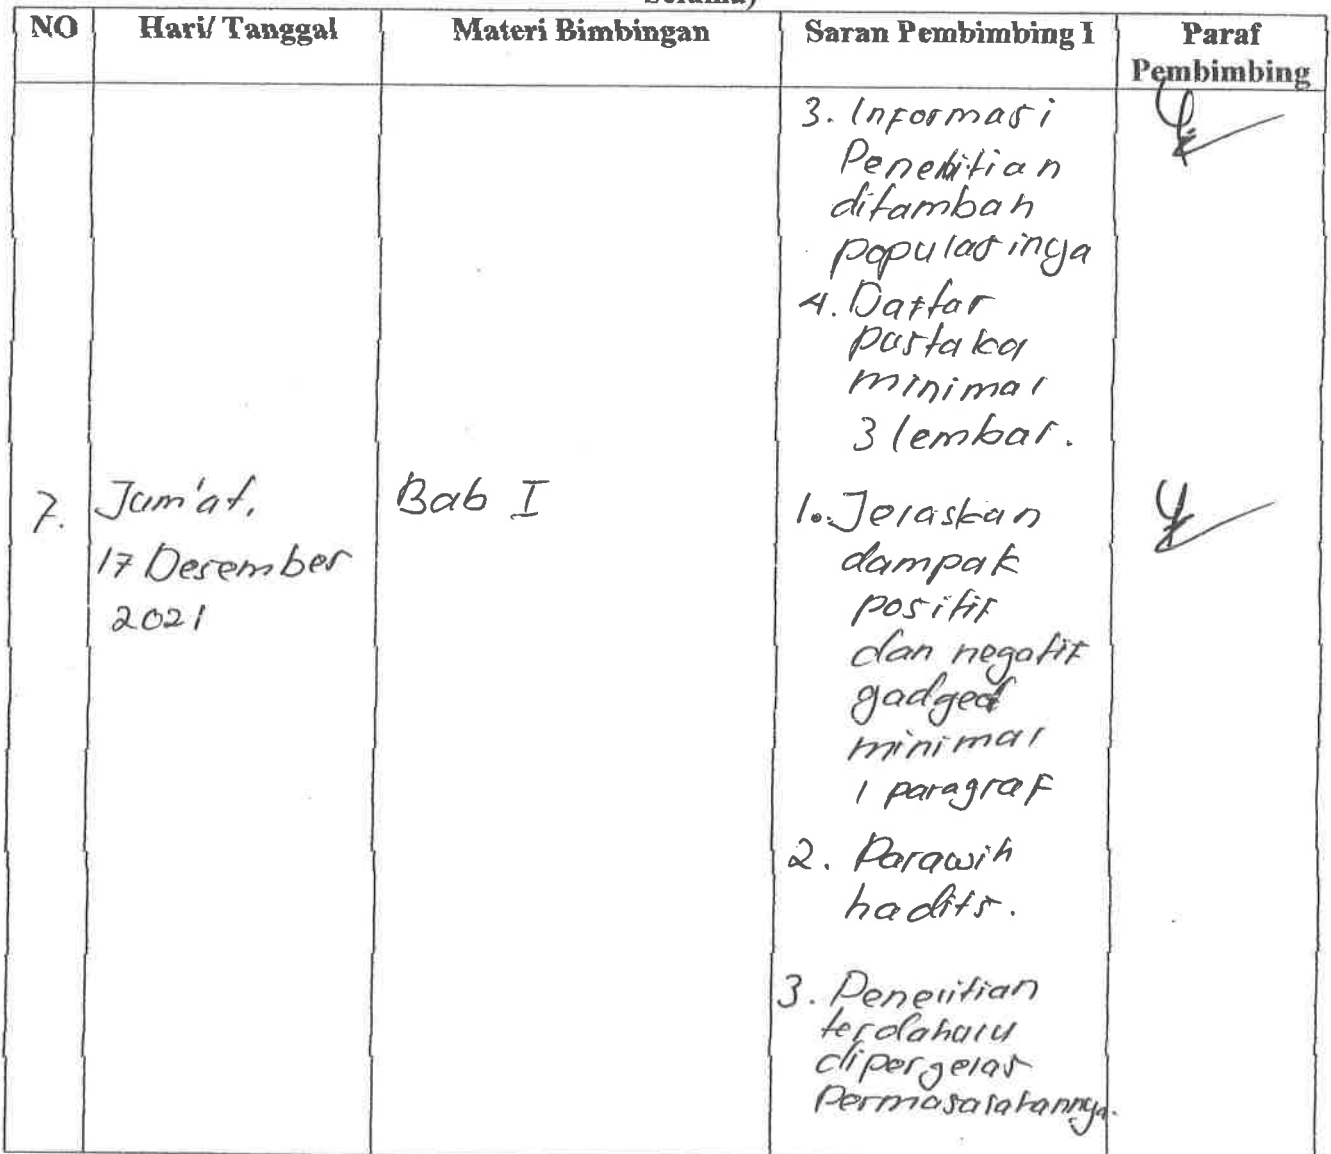 NO Hari/ Tanggal Materi Bimbingan Saran Pembimbing I Paraf
Pembimbing
3. Informasi
Penelitian
ditambah
populasinya
4. Daftar
pustaka
minimal
3 lembar.
7. Jum'at, Bab I 1. Jelaskan
17 Desember dampak
2021 positif
dan negatif
gadged
minimal
1 paragraf
2. Parawih
hadits.
3. Penelitian
terdahulu
diperjelas
Permasalahannya.